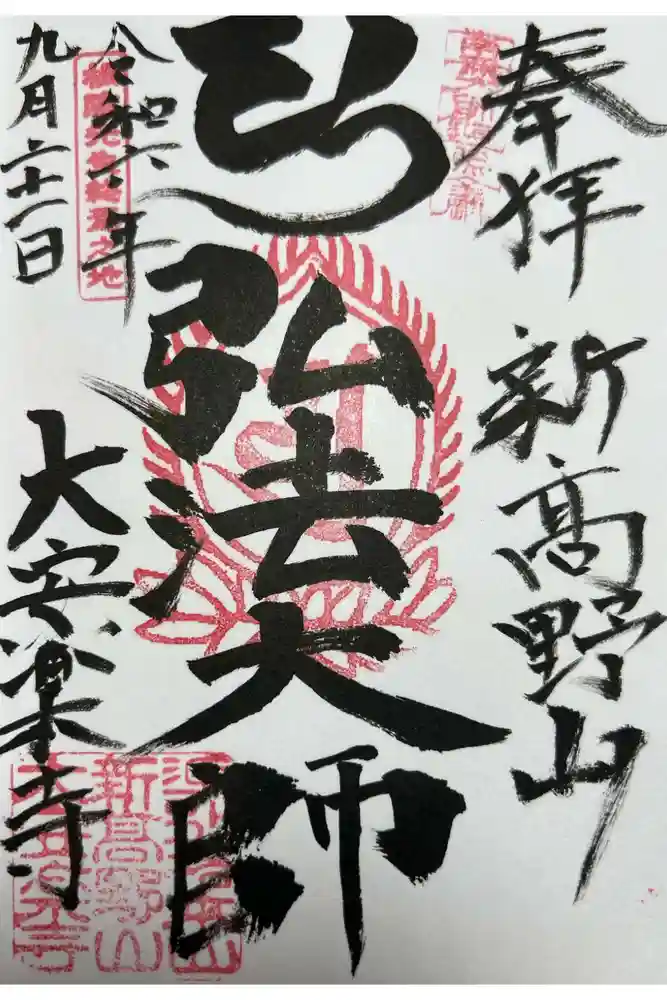 奉拝 新高野山
弘法大師
令和六年
九月二十一日
大安楽寺
新高野山
大安楽寺